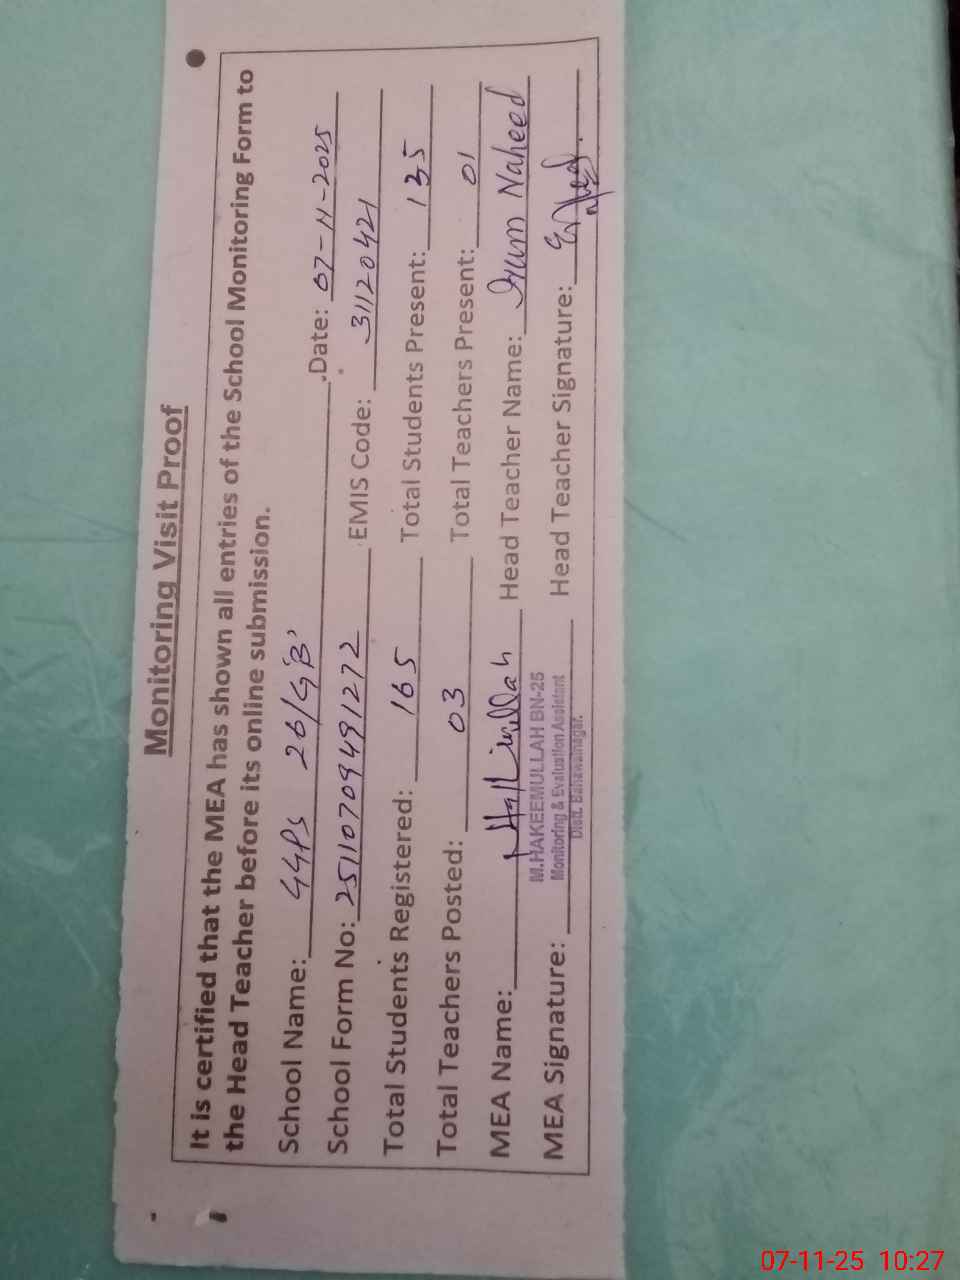 Monitoring Visit Proof
It is certified that the MEA has shown all entries of the School Monitoring Form to
the Head Teacher before its online submission.
School Name: GGPS 26/G'B' Date: 07-11-2025
School Form No: 25110709491272 EMIS Code: 31120421
Total Students Registered: 165 Total Students Present: 135
Total Teachers Posted: 03 Total Teachers Present: 01
MEA Name: Head Teacher Name: Irum Naheed
M.HAKEEMULLAH BN-25
Monitoring & Evaluation Assistant
Distt. Bahawalnagar.
MEA Signature: Head Teacher Signature:
07-11-25 10:27